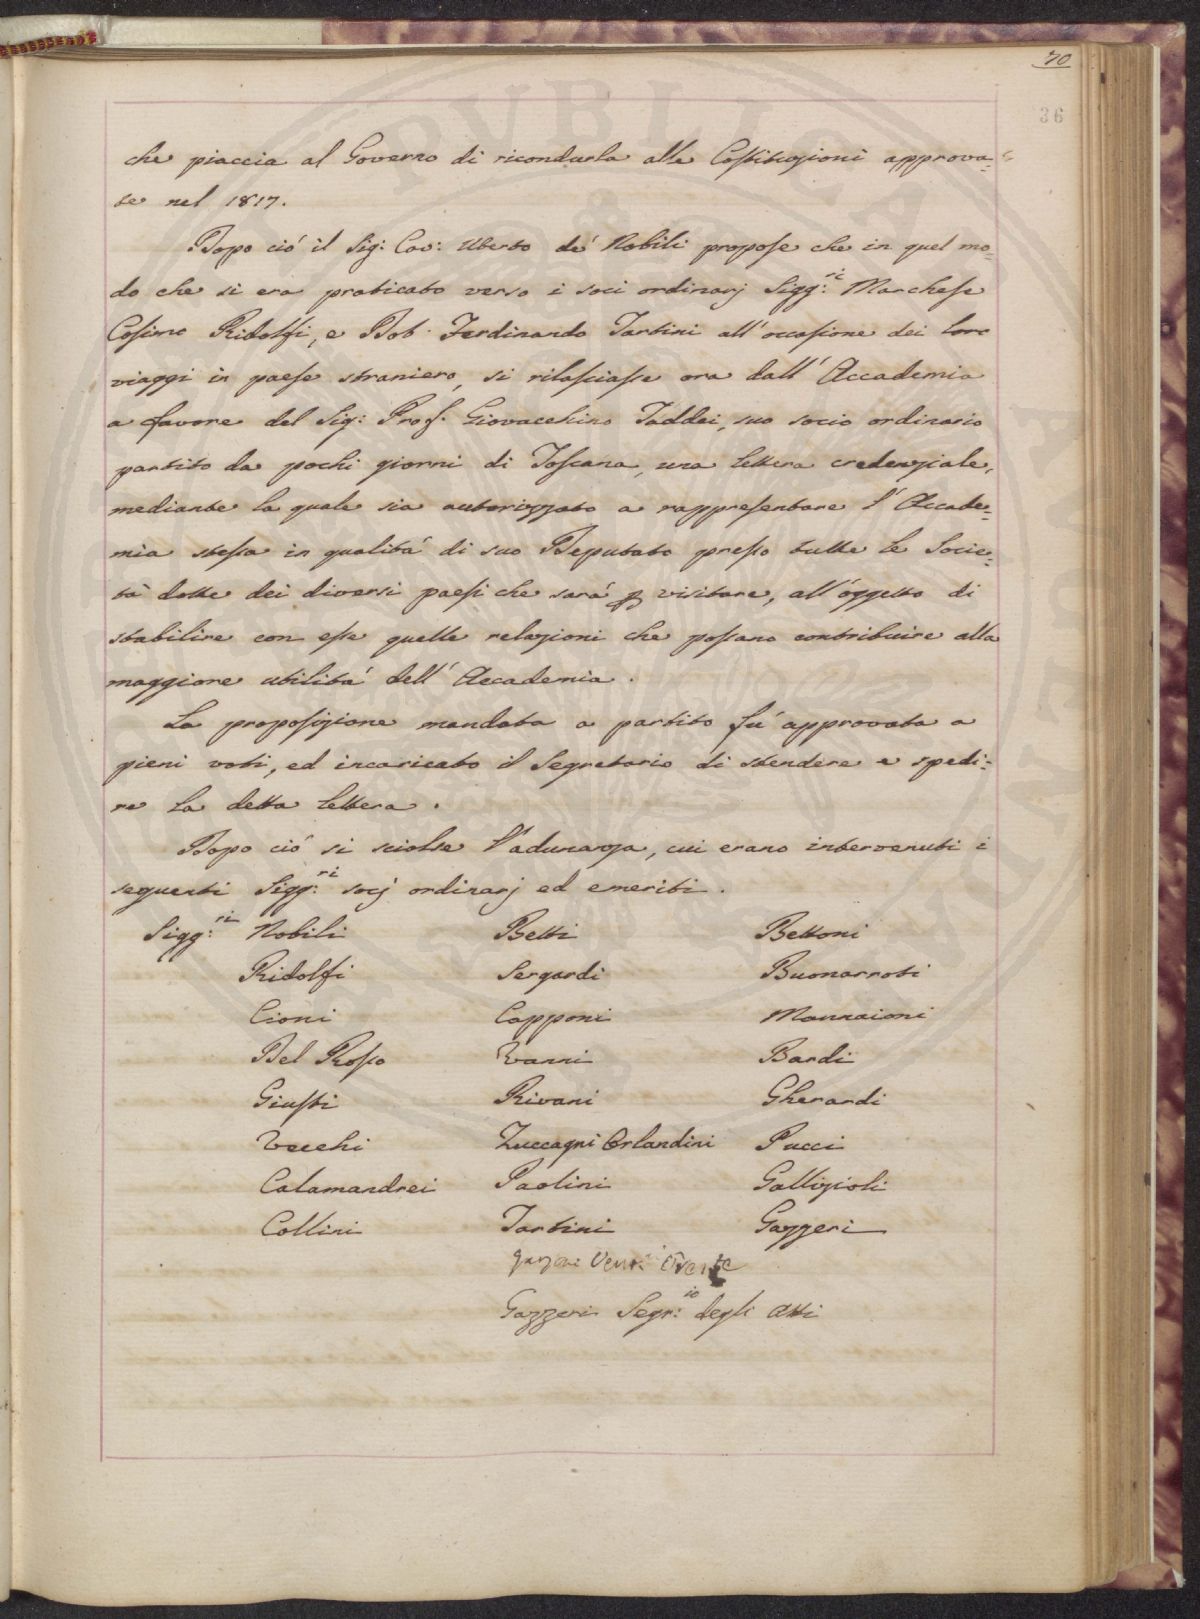 70
36
che piaccia al Governo di ricondurla alle Costituzioni approva=
te nel 1817.
Dopo ciò il Sig: Cav: Uberto de' Nobili propose che in quel mo=
do che si era praticato verso i soci ordinarj Sigg:ri Marchese
Cosimo Ridolfi, e Dot. Ferdinando Tartini all'occasione dei loro
viaggi in paese straniero, si rilasciasse ora dall'Accademia
a favore del Sig: Prof. Giovacchino Taddei, suo socio ordinario
partito da pochi giorni di Toscana, una lettera credenziale,
mediante la quale sia autorizzato a rappresentare l'Accade=
mia stessa in qualità di suo Deputato presso tutte le Socie=
tà dotte dei diversi paesi che sarà p visitare, all'oggetto di
stabilire con esse quelle relazioni che possano contribuire alla
maggiore utilità dell'Accademia.
La proposizione mandata a partito fù approvata a
pieni voti, ed incaricato il Segretario di stendere e spedi=
re la detta lettera.
Dopo ciò si sciolse l'adunanza, cui erano intervenuti i
seguenti Sigg:ri socj ordinarj ed emeriti.
Sigg:ri Nobili Betti Bettoni
Ridolfi Sergardi Buonarroti
Cioni Capponi Mannaioni
Del Rosso Vanni Bardi
Giusti Rivani Gherardi
Vecchi Zuccagni Orlandini Pucci
Calamandrei Paolini Gallizioli
Collini Tartini Gazzeri
Garzoni Venturi
Gazzeri Segr:io degli Atti